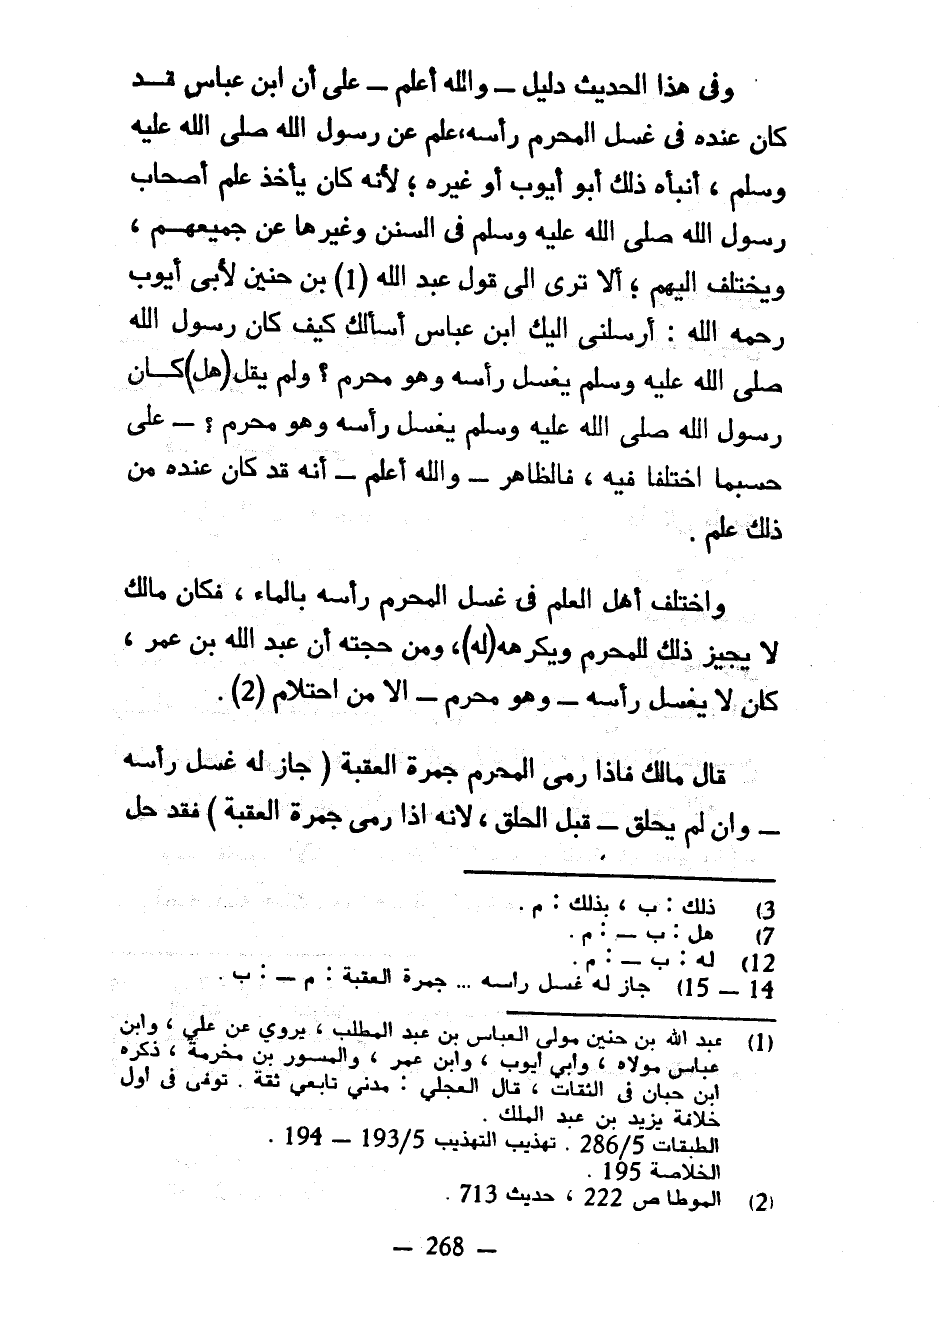 وفى هذا الحديث دليل ــ والله أعلم ــ على أن ابن عباس قــد
كان عنده فى غسل المحرم رأسه،علم عن رسول الله صلى الله عليه
وسلم ، أنبأه ذلك أبو أيوب أو غيره ؛ لأنه كان يأخذ علم أصحاب
رسول الله صلى الله عليه وسلم فى السنن وغيرها عن جميعهــم ،
ويختلف اليهم ؛ ألا ترى الى قول عبد الله (1) بن حنين لأبى أيوب
رحمه الله : أرسلنى اليك ابن عباس أسألك كيف كان رسول الله
صلى الله عليه وسلم يغسل رأسه وهو محرم ؟ ولم يقل(هل)كــان
رسول الله صلى الله عليه وسلم يغسل رأسه وهو محرم ؟ ــ على
حسبما اختلفا فيه ، فالظاهر ــ والله أعلم ــ أنه قد كان عنده من
ذلك علم .
واختلف أهل العلم فى غسل المحرم رأسه بالماء ، فكان مالك
لا يجيز ذلك للمحرم ويكرهه(له)، ومن حجته أن عبد الله بن عمر ،
كان لا يغسل رأسه ــ وهو محرم ــ الا من احتلام (2) .
قال مالك فاذا رمى المحرم جمرة العقبة ( جاز له غسل رأسه
ــ وان لم يحلق ــ قبل الحلق ، لانه اذا رمى جمرة العقبة ) فقد حل
3) ذلك : ب ، بذلك : م .
7) هل : ب ــ : م .
12) له : ب ــ : م .
14 ــ 15) جاز له غسل راسه ... جمرة العقبة : م ــ : ب .
(1) عبد الله بن حنين مولى العباس بن عبد المطلب ، يروي عن علي ، وابن
عباس مولاه ، وأبي أيوب ، وابن عمر ، والمسور بن مخرمة ، ذكره
ابن حبان فى الثقات ، قال العجلي : مدني تابعي ثقة . توفى فى أول
خلافة يزيد بن عبد الملك .
الطبقات 286/5 . تهذيب التهذيب 193/5 ــ 194 .
الخلاصة 195 .
(2) الموطا ص 222 ، حديث 713 .
ــ 268 ــ